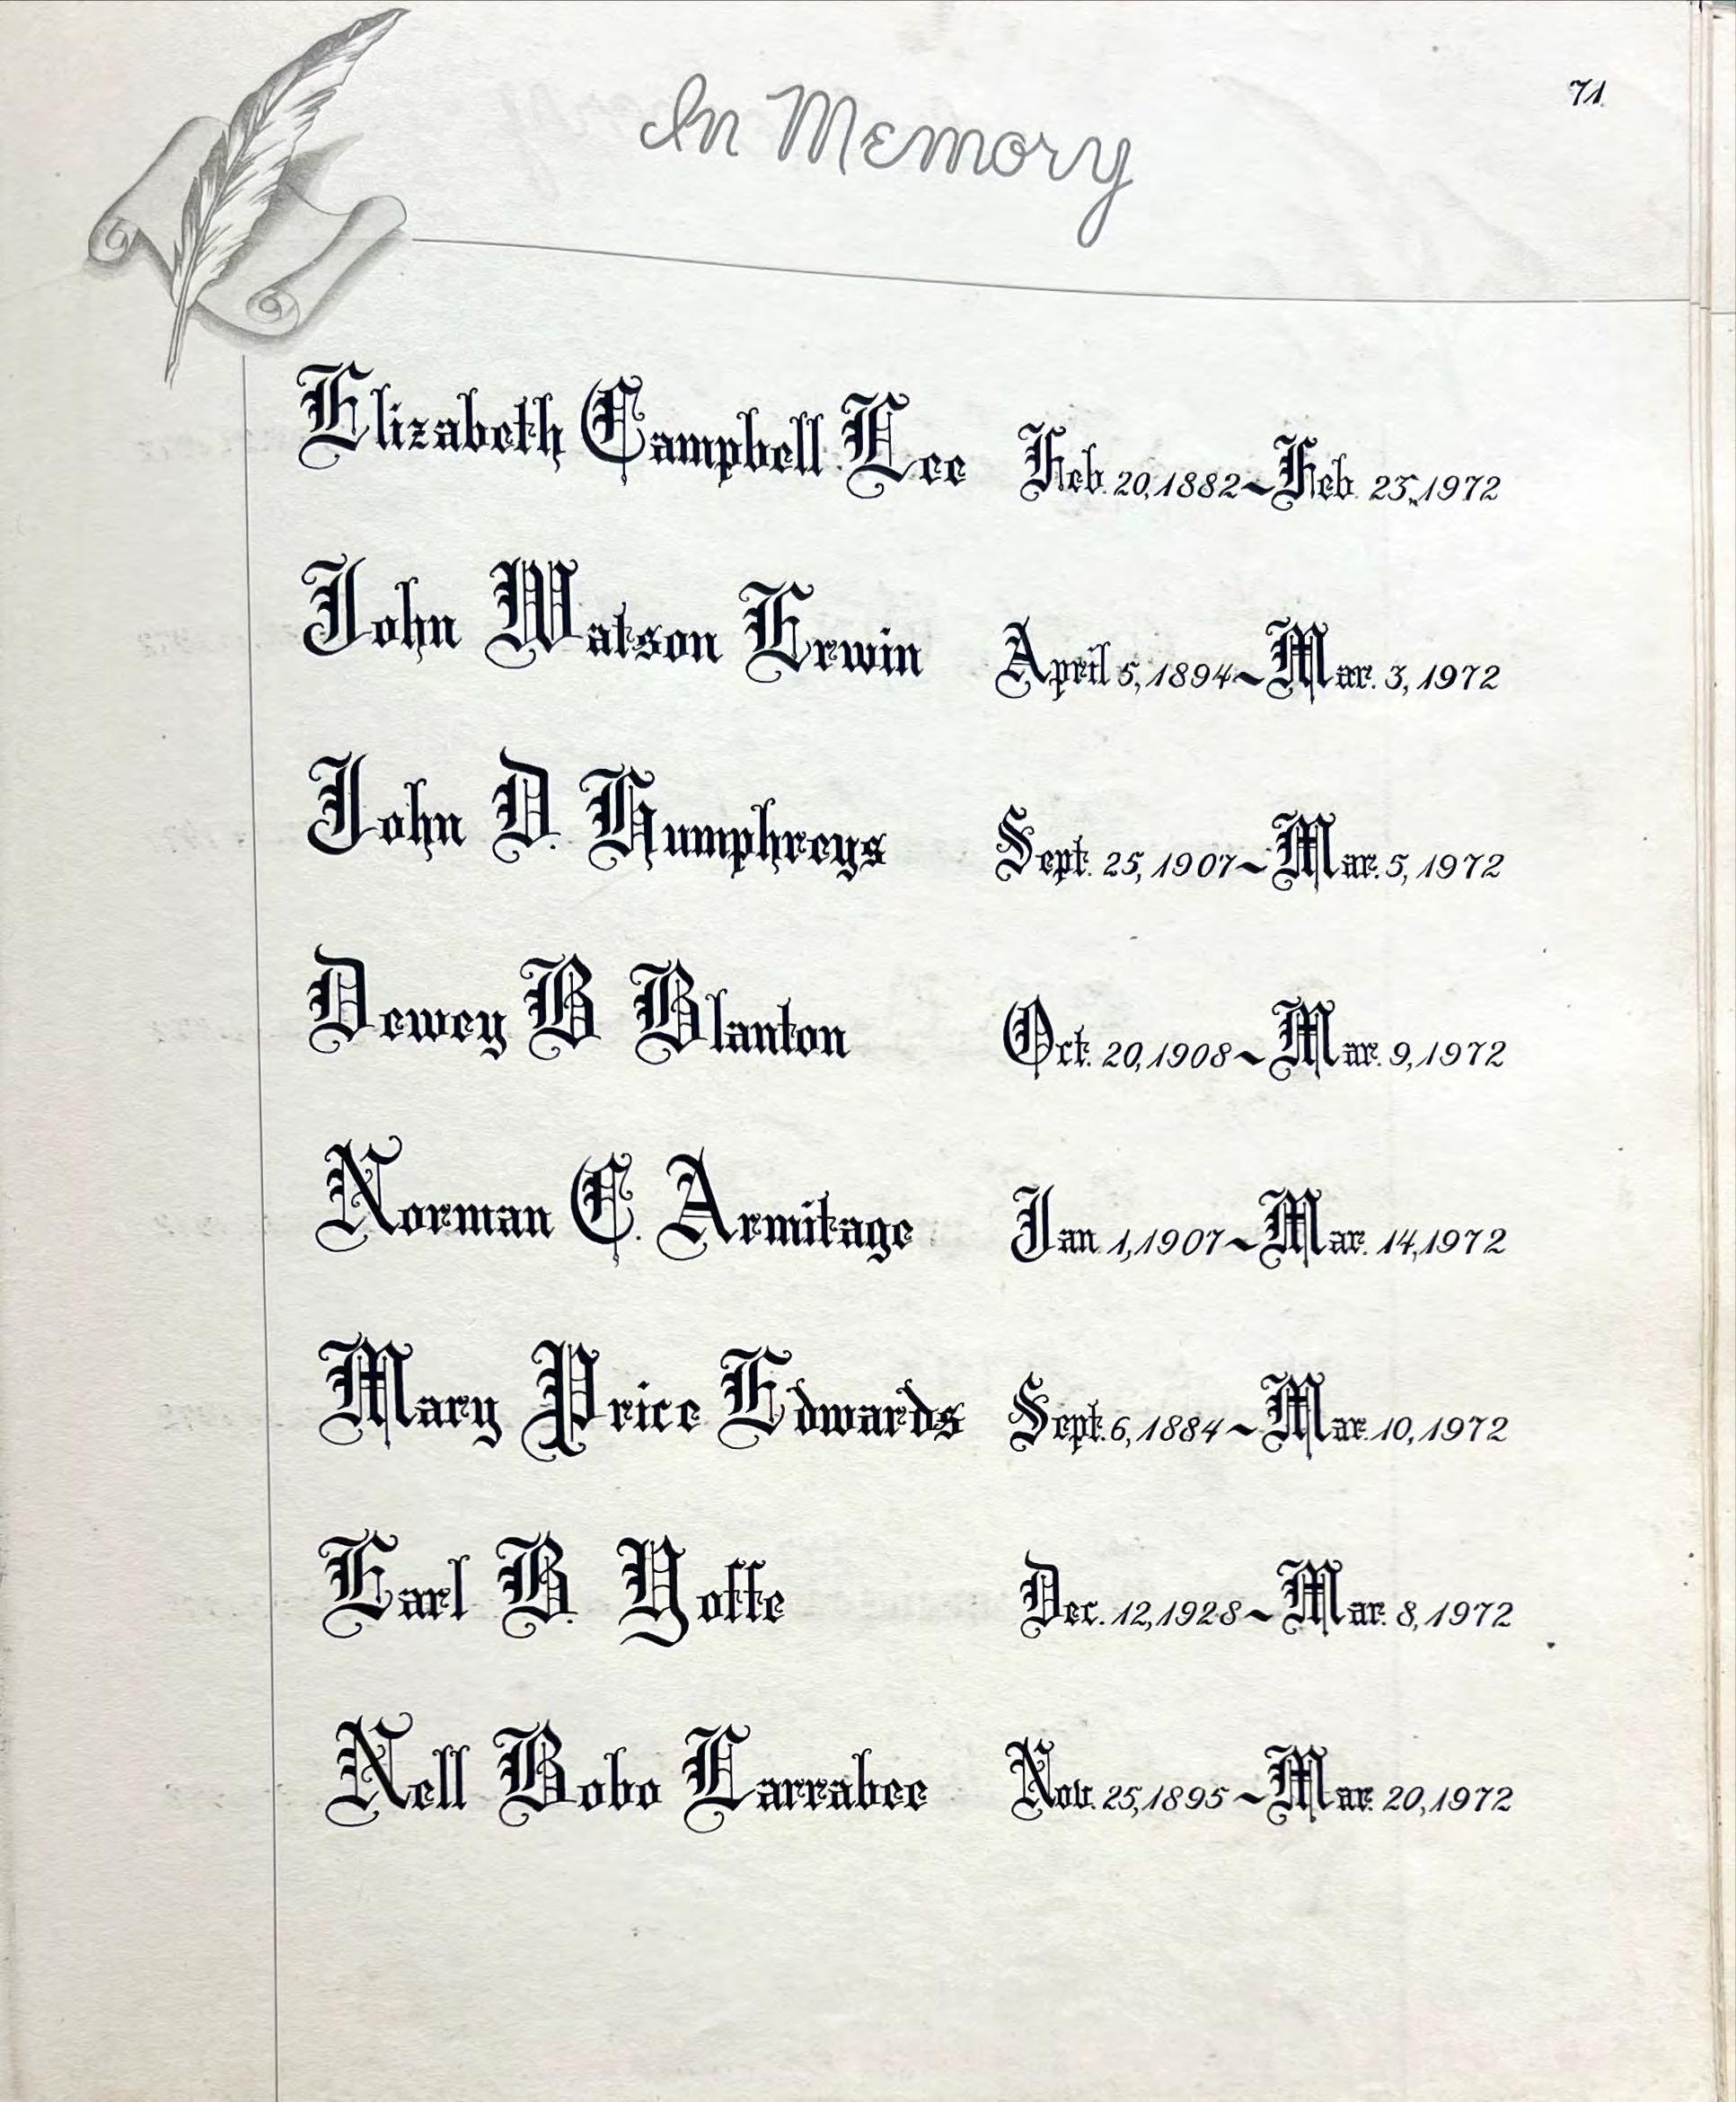 71
In Memory
Elizabeth Campbell Lee Feb. 20,1882~Feb. 23,1972
John Watson Erwin April 5, 1894~Mar. 3, 1972
John D. Humphreys Sept. 25, 1907~Mar. 5, 1972
Dewey B Blanton Oct. 20,1908~Mar. 9,1972
Norman C. Armitage Jan 1,1907~Mar. 14,1972
Mary Price Edwards Sept. 6,1884~Mar. 10,1972
Earl B. Yoffe Dec. 12,1928~Mar. 8,1972
Nell Bobo Larrabee Nov. 25,1895~Mar. 20,1972